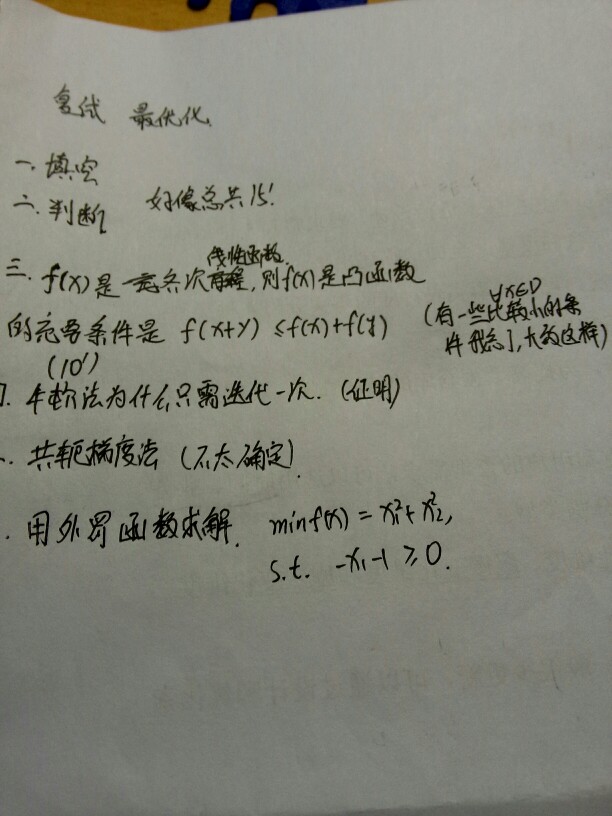 复试 最优化
一、填空
二、判断 好像总共15'
线性函数
三. f(x)是一齐次,则f(x)是凸函数
的充要条件是 f(x+y) ≤ f(x)+f(y) ∀x∈D (有一些比较小的条
件我忘了,大致这样)
(10')
牛顿法为什么只需迭代一次. (证明)
共轭梯度法 (不太确定).
用外罚函数求解. min f(x) = x₁²+x₂²,
s.t. -x₁-1 ≥0.